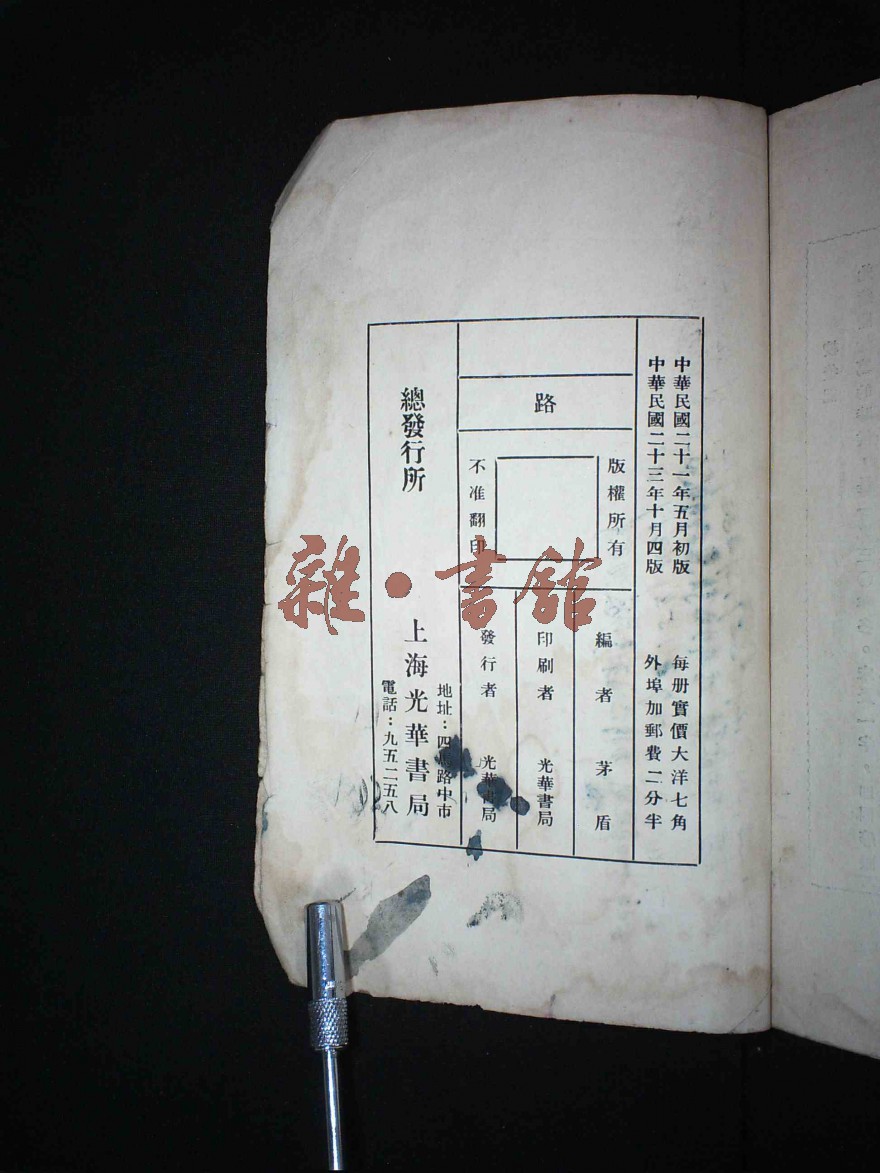 中華民國二十一年五月初版
中華民國二十三年十月四版
每册實價大洋七角
外埠加郵費二分半
路
版權所有
不准翻印
編者 茅盾
印刷者 光華書局
發行者 光華書局
總發行所
上海光華書局
地址：四 路中市
電話：九五二五八
雜·書館